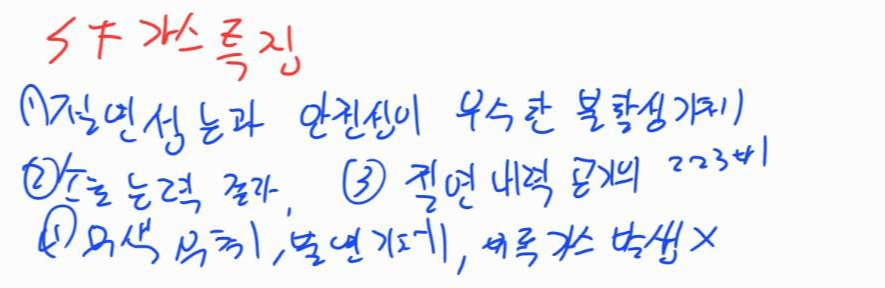 SF 가스 특징
① 절연성능과 안전성이 우수한 불활성기체
② 소호능력 크다, ③ 절연내력 공기의 2~3배
④ 무색 무취, 불연기체, 유독가스 발생X